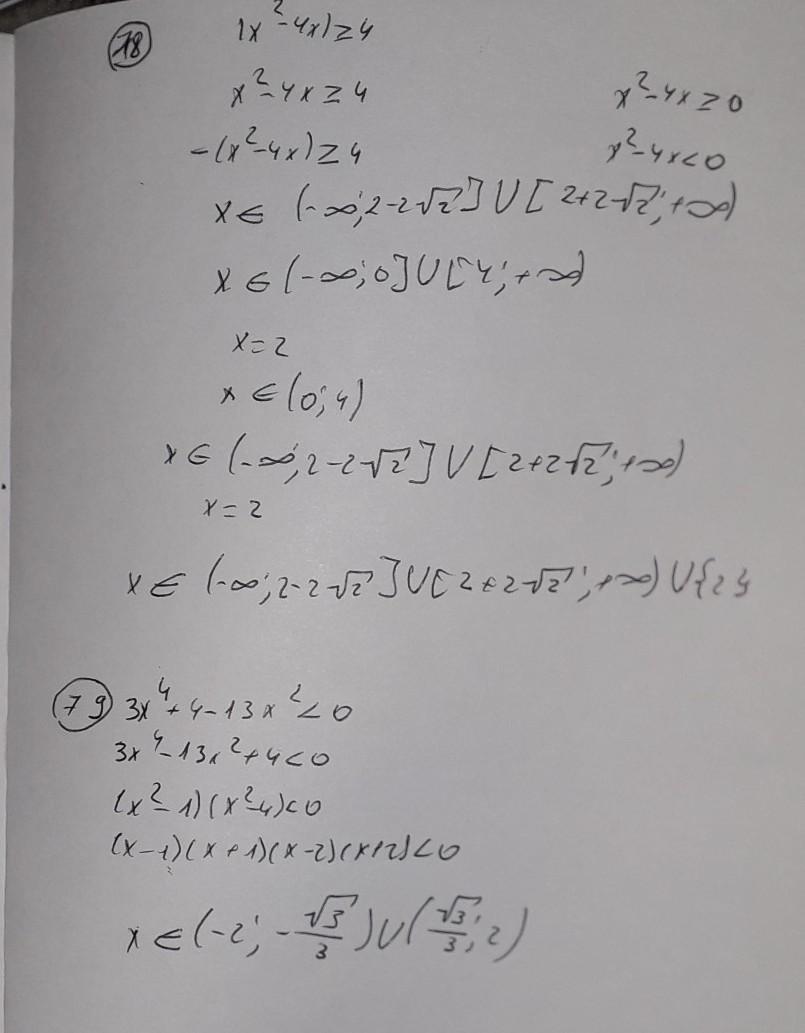 78 |x²-4x|≥4
x²-4x≥4 x²-4x≥0
-(x²-4x)≥4 x²-4x<0
x∈ (-∞;2-2√2]∪[2+2√2;+∞)
x∈(-∞;0]∪[4;+∞)
x=2
x∈(0;4)
x∈(-∞;2-2√2]∪[2+2√2;+∞)
x=2
x∈ (-∞;2-2√2]∪[2+2√2;+∞)∪{2}
79 3x⁴+4-13x²<0
3x⁴-13x²+4<0
(x²-1)(x²-4)<0
(x-1)(x+1)(x-2)(x+2)<0
x∈(-2;-√3/3)∪(√3/3;2)